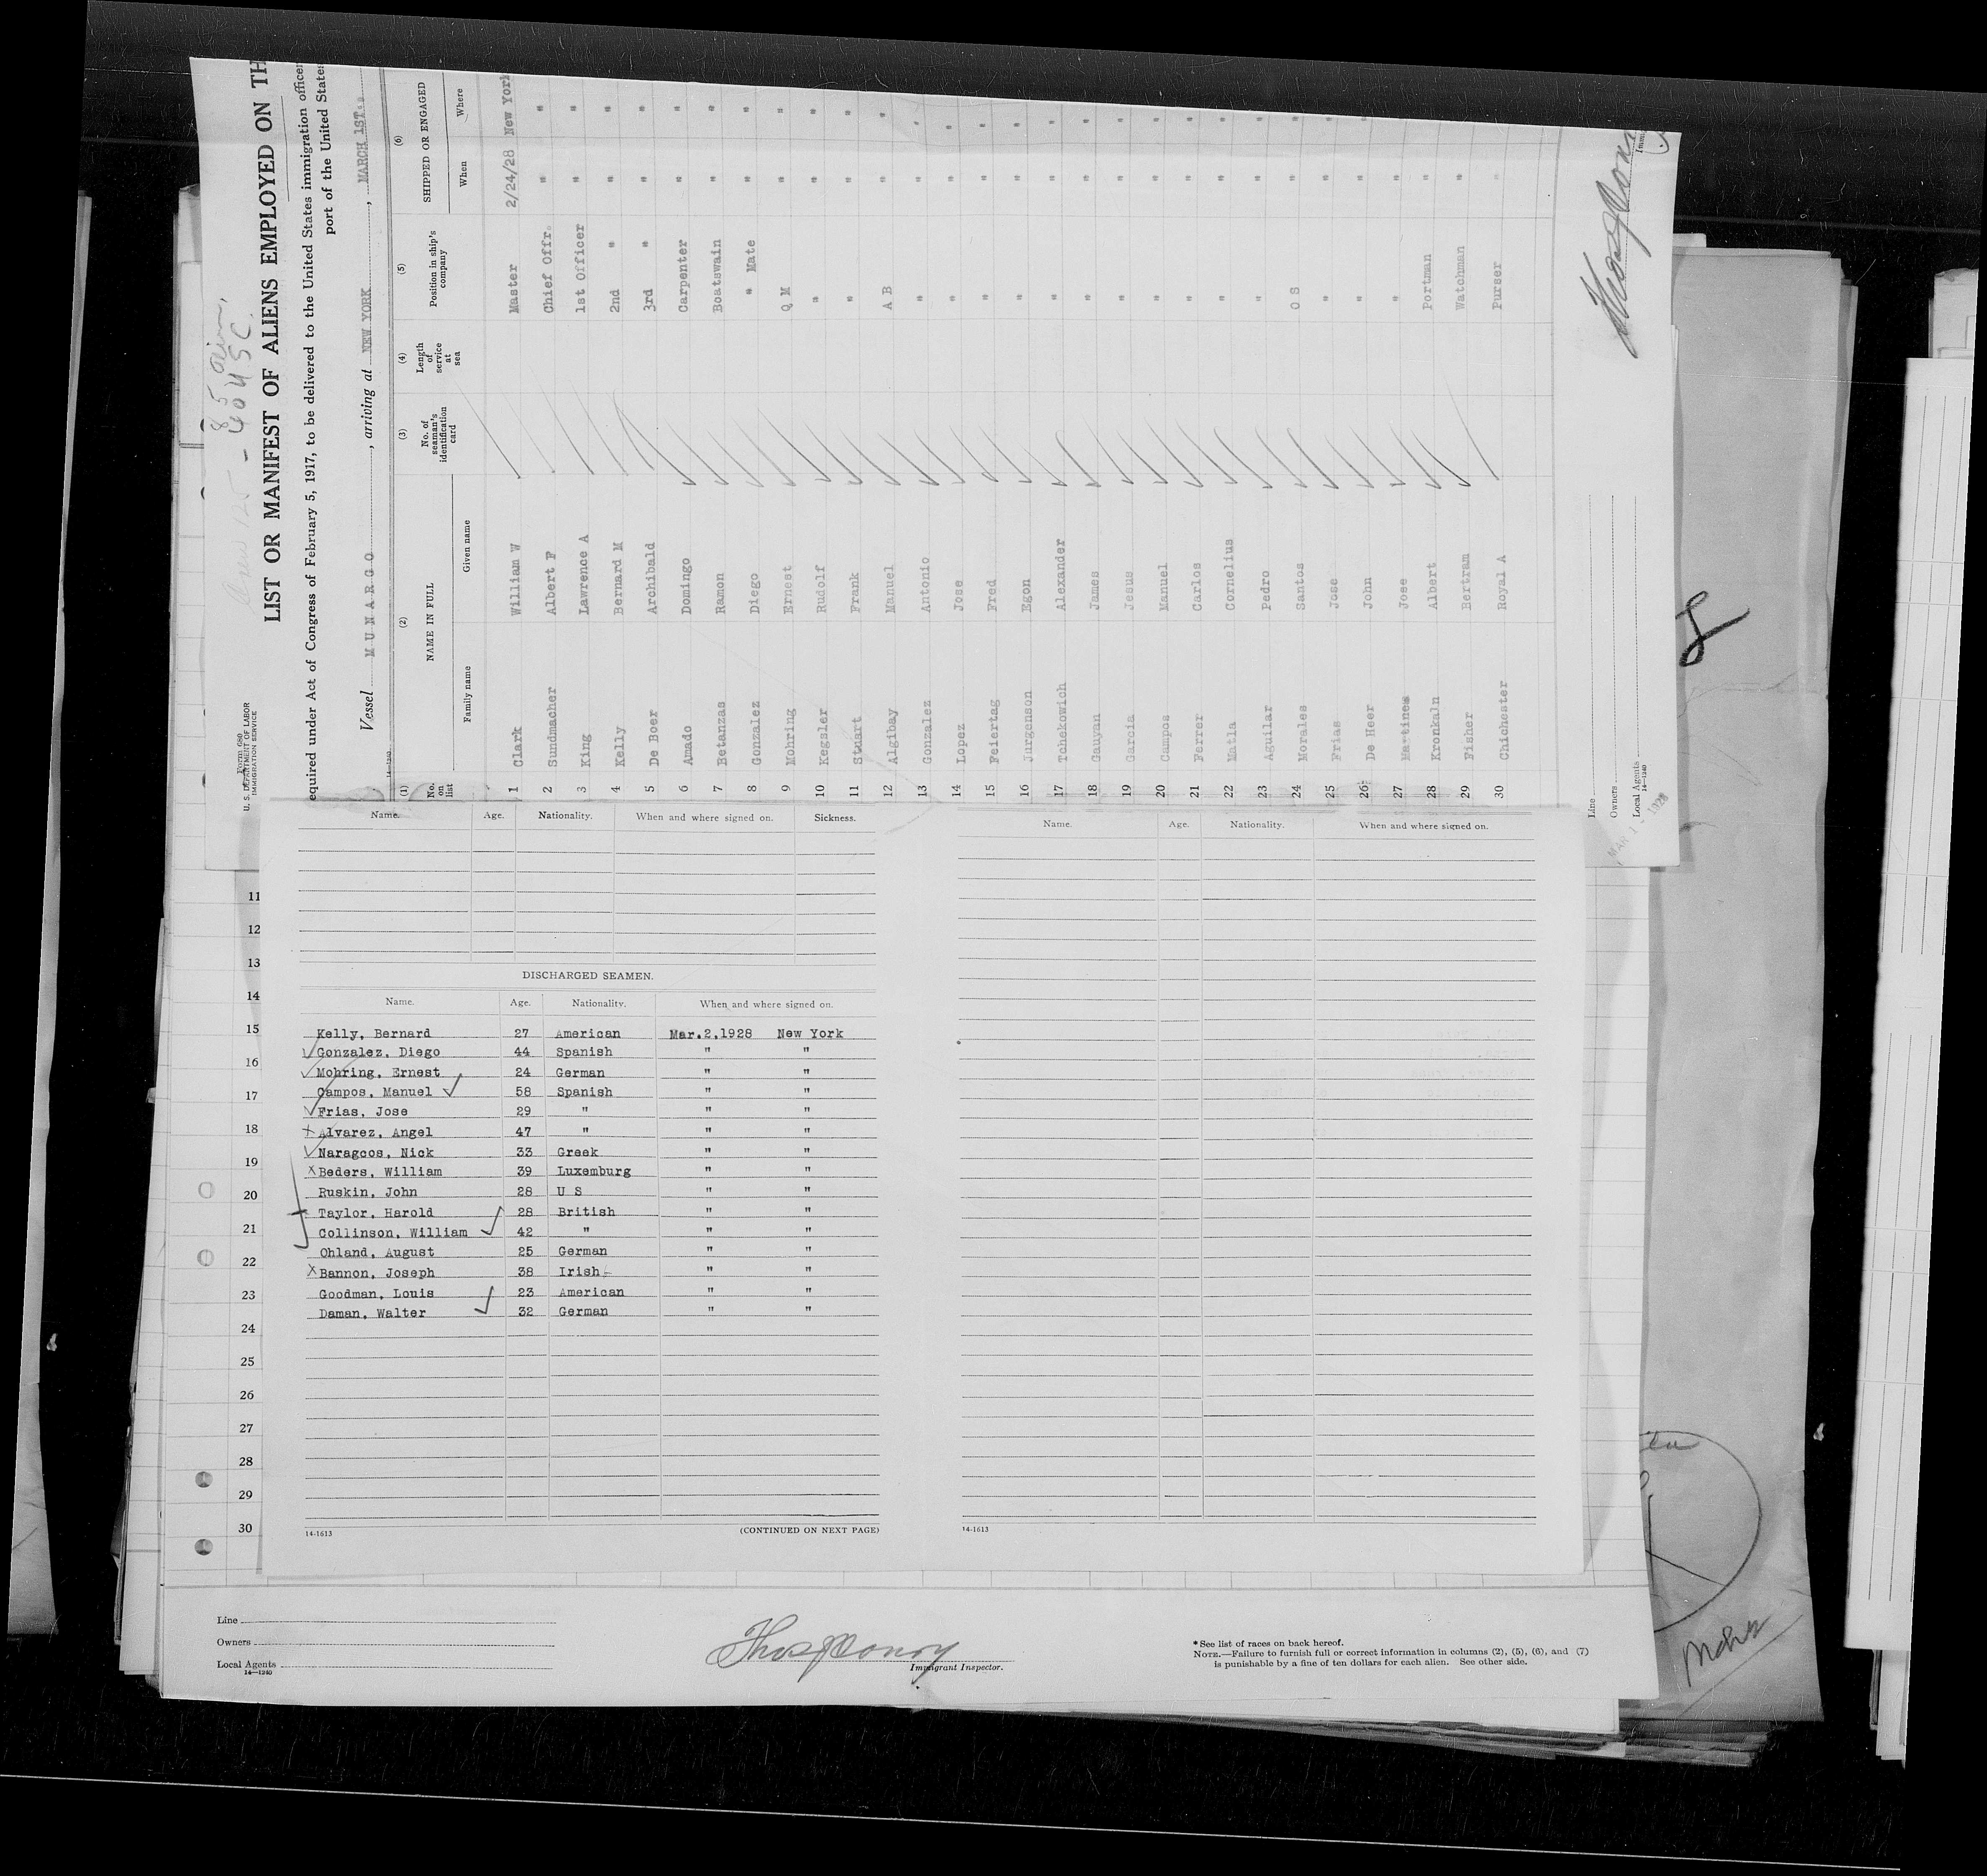 Form 680
U. S. DEPARTMENT OF LABOR
IMMIGRATION SERVICE
LIST OR MANIFEST OF ALIENS EMPLOYED ON TH
equired under Act of Congress of February 5, 1917, to be delivered to the United States immigration officer
port of the United States
Vessel MUNARGO, arriving at NEW YORK, MARCH 1ST.
14-1240
(1) (2) (3) (4) (5) (6)
No. on list NAME IN FULL No. of seaman's identification card Length of service at sea Position in ship's company SHIPPED OR ENGAGED
Family name Given name When Where
1 Clark William W Master 2/24/28 New York
2 Sundmacher Albert F Chief Offr. " "
3 King Lawrence A 1st Officer " "
4 Kelly Bernard M 2nd " " "
5 De Boer Archibald 3rd " " "
6 Amado Domingo Carpenter " "
7 Betanzas Ramon Boatswain " "
8 Gonzalez Diego " Mate " "
9 Mohring Ernest Q M " "
10 Kegsler Rudolf " " "
11 Stuart Frank " " "
12 Algibay Manuel A B " "
13 Gonzalez Antonio " " "
14 Lopez Jose " " "
15 Feiertag Fred " " "
16 Jurgenson Egon " " "
17 Tchekowich Alexander " " "
18 Gauyan James " " "
19 Garcia Jesus " " "
20 Campos Manuel " " "
21 Ferrer Carlos " " "
22 Matla Cornelius " " "
23 Aguilar Pedro " " "
24 Morales Santos O S " "
25 Frias Jose " " "
26 De Heer John " " "
27 Martines Jose " "
28 Kronkaln Albert Portman "
29 Fisher Bertram Watchman "
30 Chichester Royal A Purser "
Line
Owners
Local Agents
14-1240
Name. Age. Nationality. When and where signed on. Sickness.
Name. Age. Nationality. When and where signed on.
11
12
13
14
15
16
17
18
19
20
21
22
23
24
25
26
27
28
29
30
DISCHARGED SEAMEN.
Name. Age. Nationality. When and where signed on.
Kelly, Bernard 27 American Mar.2,1928 New York
Gonzalez, Diego 44 Spanish " "
Mohring, Ernest 24 German " "
Campos, Manuel 58 Spanish " "
Frias, Jose 29 " " "
Alvarez, Angel 47 " " "
Naragcos, Nick 33 Greek " "
Beders, William 39 Luxemburg " "
Ruskin, John 28 U S " "
Taylor, Harold 28 British " "
Collinson, William 42 " " "
Ohland, August 25 German " "
Bannon, Joseph 38 Irish " "
Goodman, Louis 23 American " "
Daman, Walter 32 German " "
14-1613 (CONTINUED ON NEXT PAGE)
14-1613
Line
Owners
Local Agents
14-1240
Immigrant Inspector.
* See list of races on back hereof.
NOTE.—Failure to furnish full or correct information in columns (2), (5), (6), and (7)
is punishable by a fine of ten dollars for each alien. See other side.